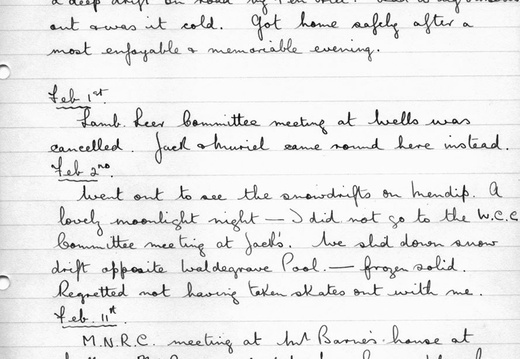 a deep drift on road by
out & was it cold. Got home safely after a
most enjoyable & memorable evening.
Feb 1st.
Lamb Leer Committee meeting at Wells was
cancelled. Jack & Muriel came round here instead.
Feb 2nd.
Went out to see the snowdrifts on Mendip. A
lovely moonlight night — I did not go to the W.C.C.
Committee meeting at Jack's. We slid down snow
drift opposite Waldegrave Pool. — frozen solid.
Regretted not having taken skates out with me.
Feb. 11th.
M.N.R.C. meeting at Mr Barne's house at